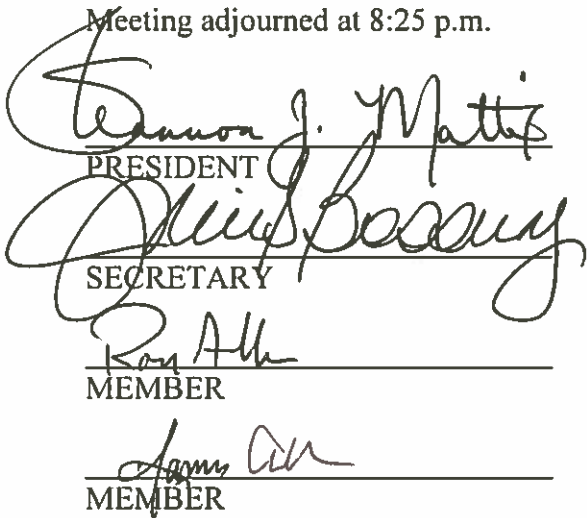 Meeting adjourned at 8:25 p.m.
Shannon J. Mattis
PRESIDENT
SECRETARY
Ron
MEMBER
James
MEMBER